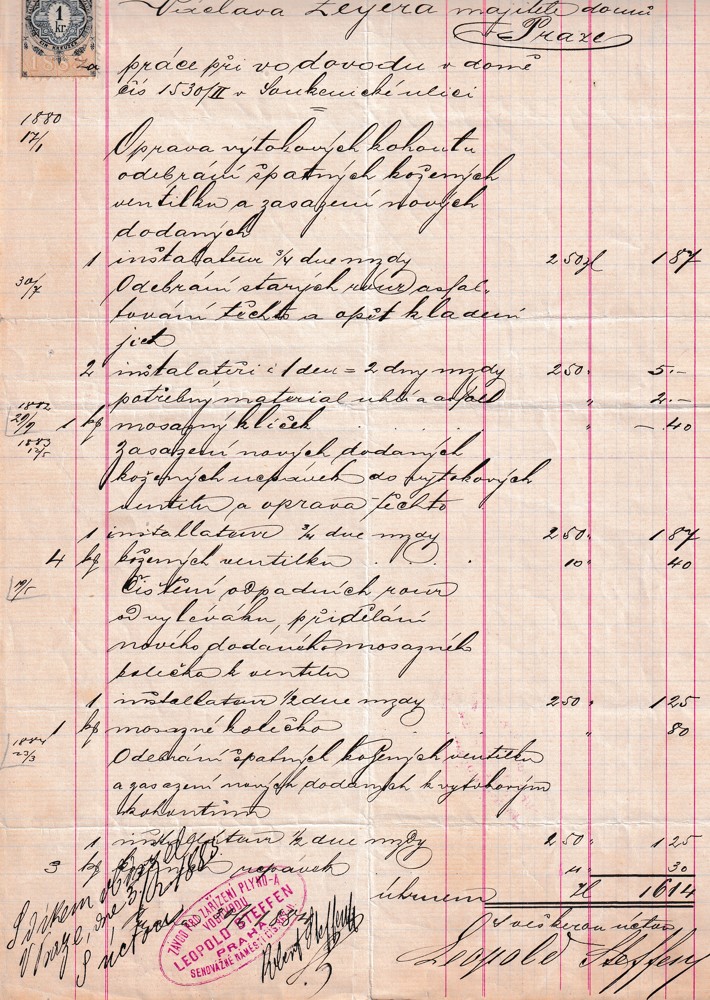 1 kr
Václava Zeyera majitele domů
v Praze
za práce při vodovodu v domě
čís 1530/II v Soukenické ulici
1880
17/1
Oprava výtokových kohoutu
odebrání špatných kožených
ventilku a zasazení nových
dodaných
1 instalateur 3/4 dne mzdy 250 zl 187
30/7 Odebrání starých rour asfal-
tování těchto a opět kladení
jich
2 instalateři i 1 den = 2 dny mzdy 250 " 5.-
potřebný material uhlí a asfalt " 2.-
1882
20/9 1 kg mosazný klíček . . . . " -.40
1883
12/5 Zasazení nových dodaných
kožených ucpávek do výtokových
ventilu a oprava těchto
1 installateur 3/4 dne mzdy 250 " 187
4 kg kožených ventilku . . . 10 " 40
Čistění odpadních rour
od výléváku, přidělání
nového dodaného mosazného
kolíčka k ventilu
1 installateur 1/2 dne mzdy 250 " 125
1 kg mosazné kolíčko " 80
1884
23/3 Odebrání špatných kožených ventilku
a zasazení nových dodaných k výtokovým
kohoutum
1 installateur 1/2 dne mzdy 250 " 125
3 kg ucpávek " 30
úhrnem zl 1614
S díkem
V Praze, dne 3/ 1885
S úctou
ZÁVOD PRO ZAŘÍZENÍ PLYNO-A
VODOVODU
LEOPOLD STEFFEN
PRAHA
SENOVÁŽNÉ NÁMĚSTÍ
Robert Steffen
S veškerou úctou
Leopold Steffen